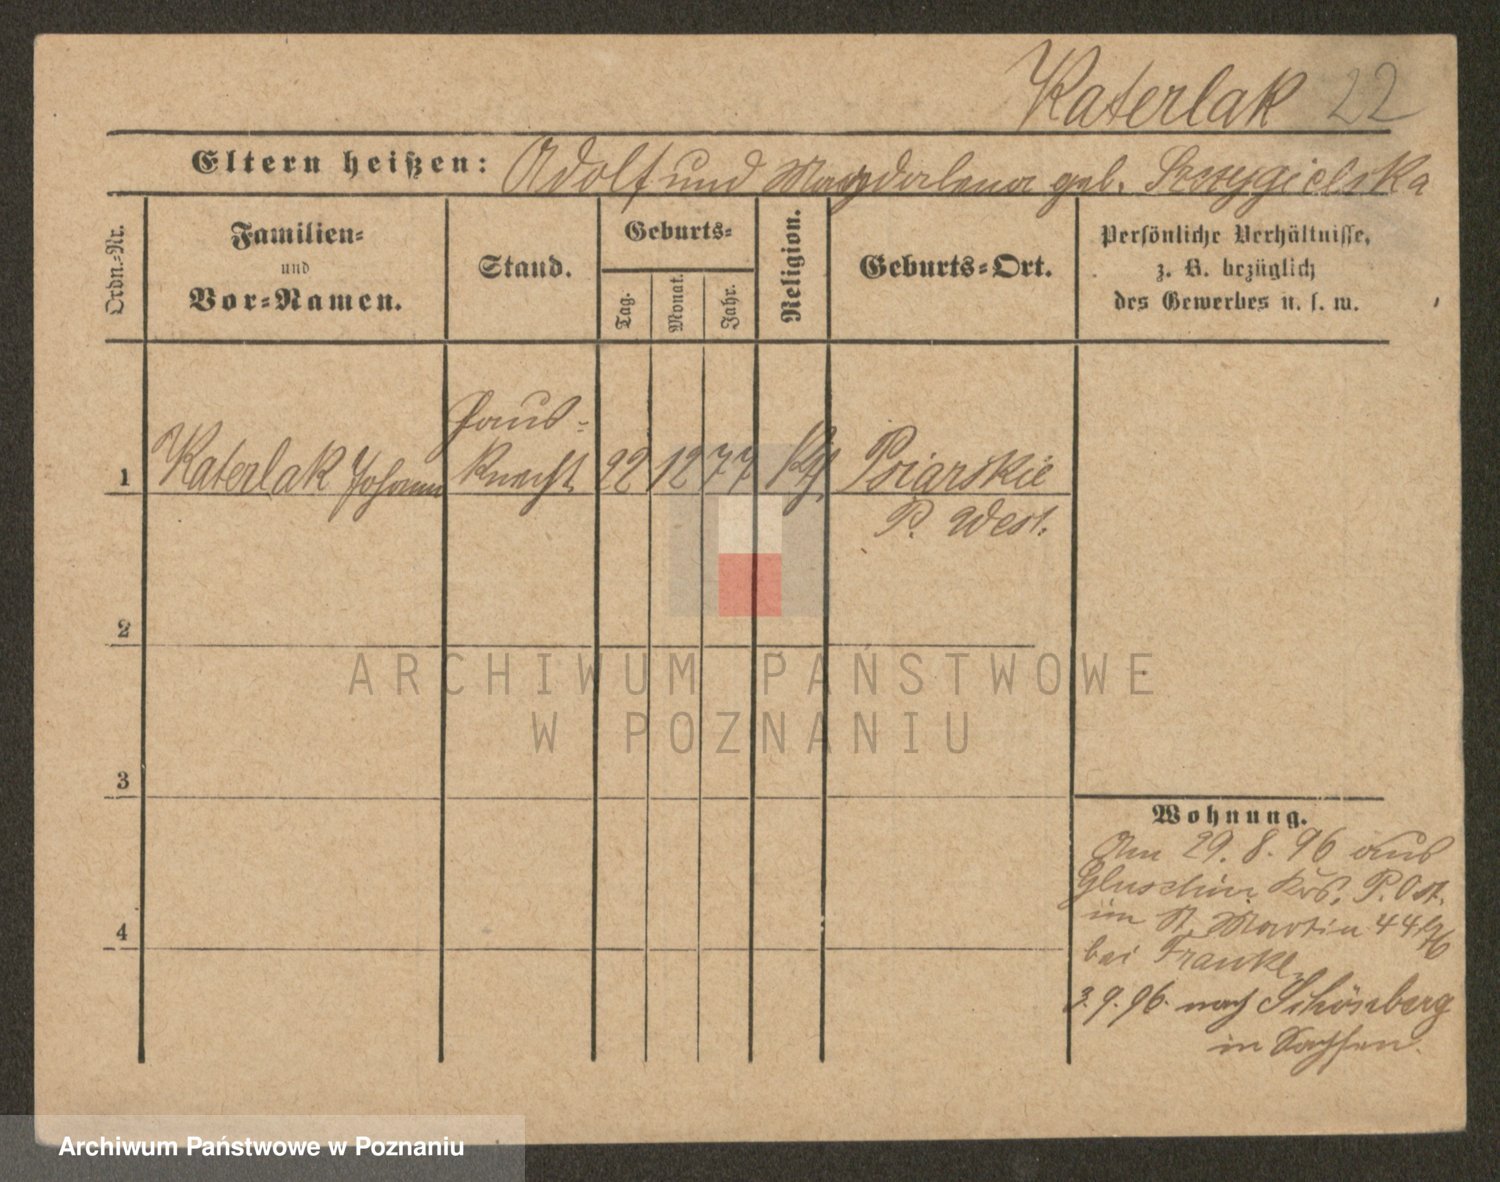 Katerlak 22
Eltern heißen: Adolf und Magdalena geb. Szczygielska
Ordn.-Nr.
Familien-
und
Vor-Namen.
Stand.
Geburts-
Tag.
Monat.
Jahr.
Religion.
Geburts-Ort.
Persönliche Verhältnisse,
z. B. bezüglich
des Gewerbes u. s. w.
Haus-
1 Katerlak Johann Knecht 22 12 77 Kth. Psiarskie
P. West.
2
3
4
Wohnung.
Am 29. 8. 96 aus
Gluschin Krs. P. Ost.
in St. Martin 44
bei Frankl
3. 9. 96. nach Schönberg
in Sachsen.
ARCHIWUM PAŃSTWOWE
W POZNANIU
Archiwum Państwowe w Poznaniu